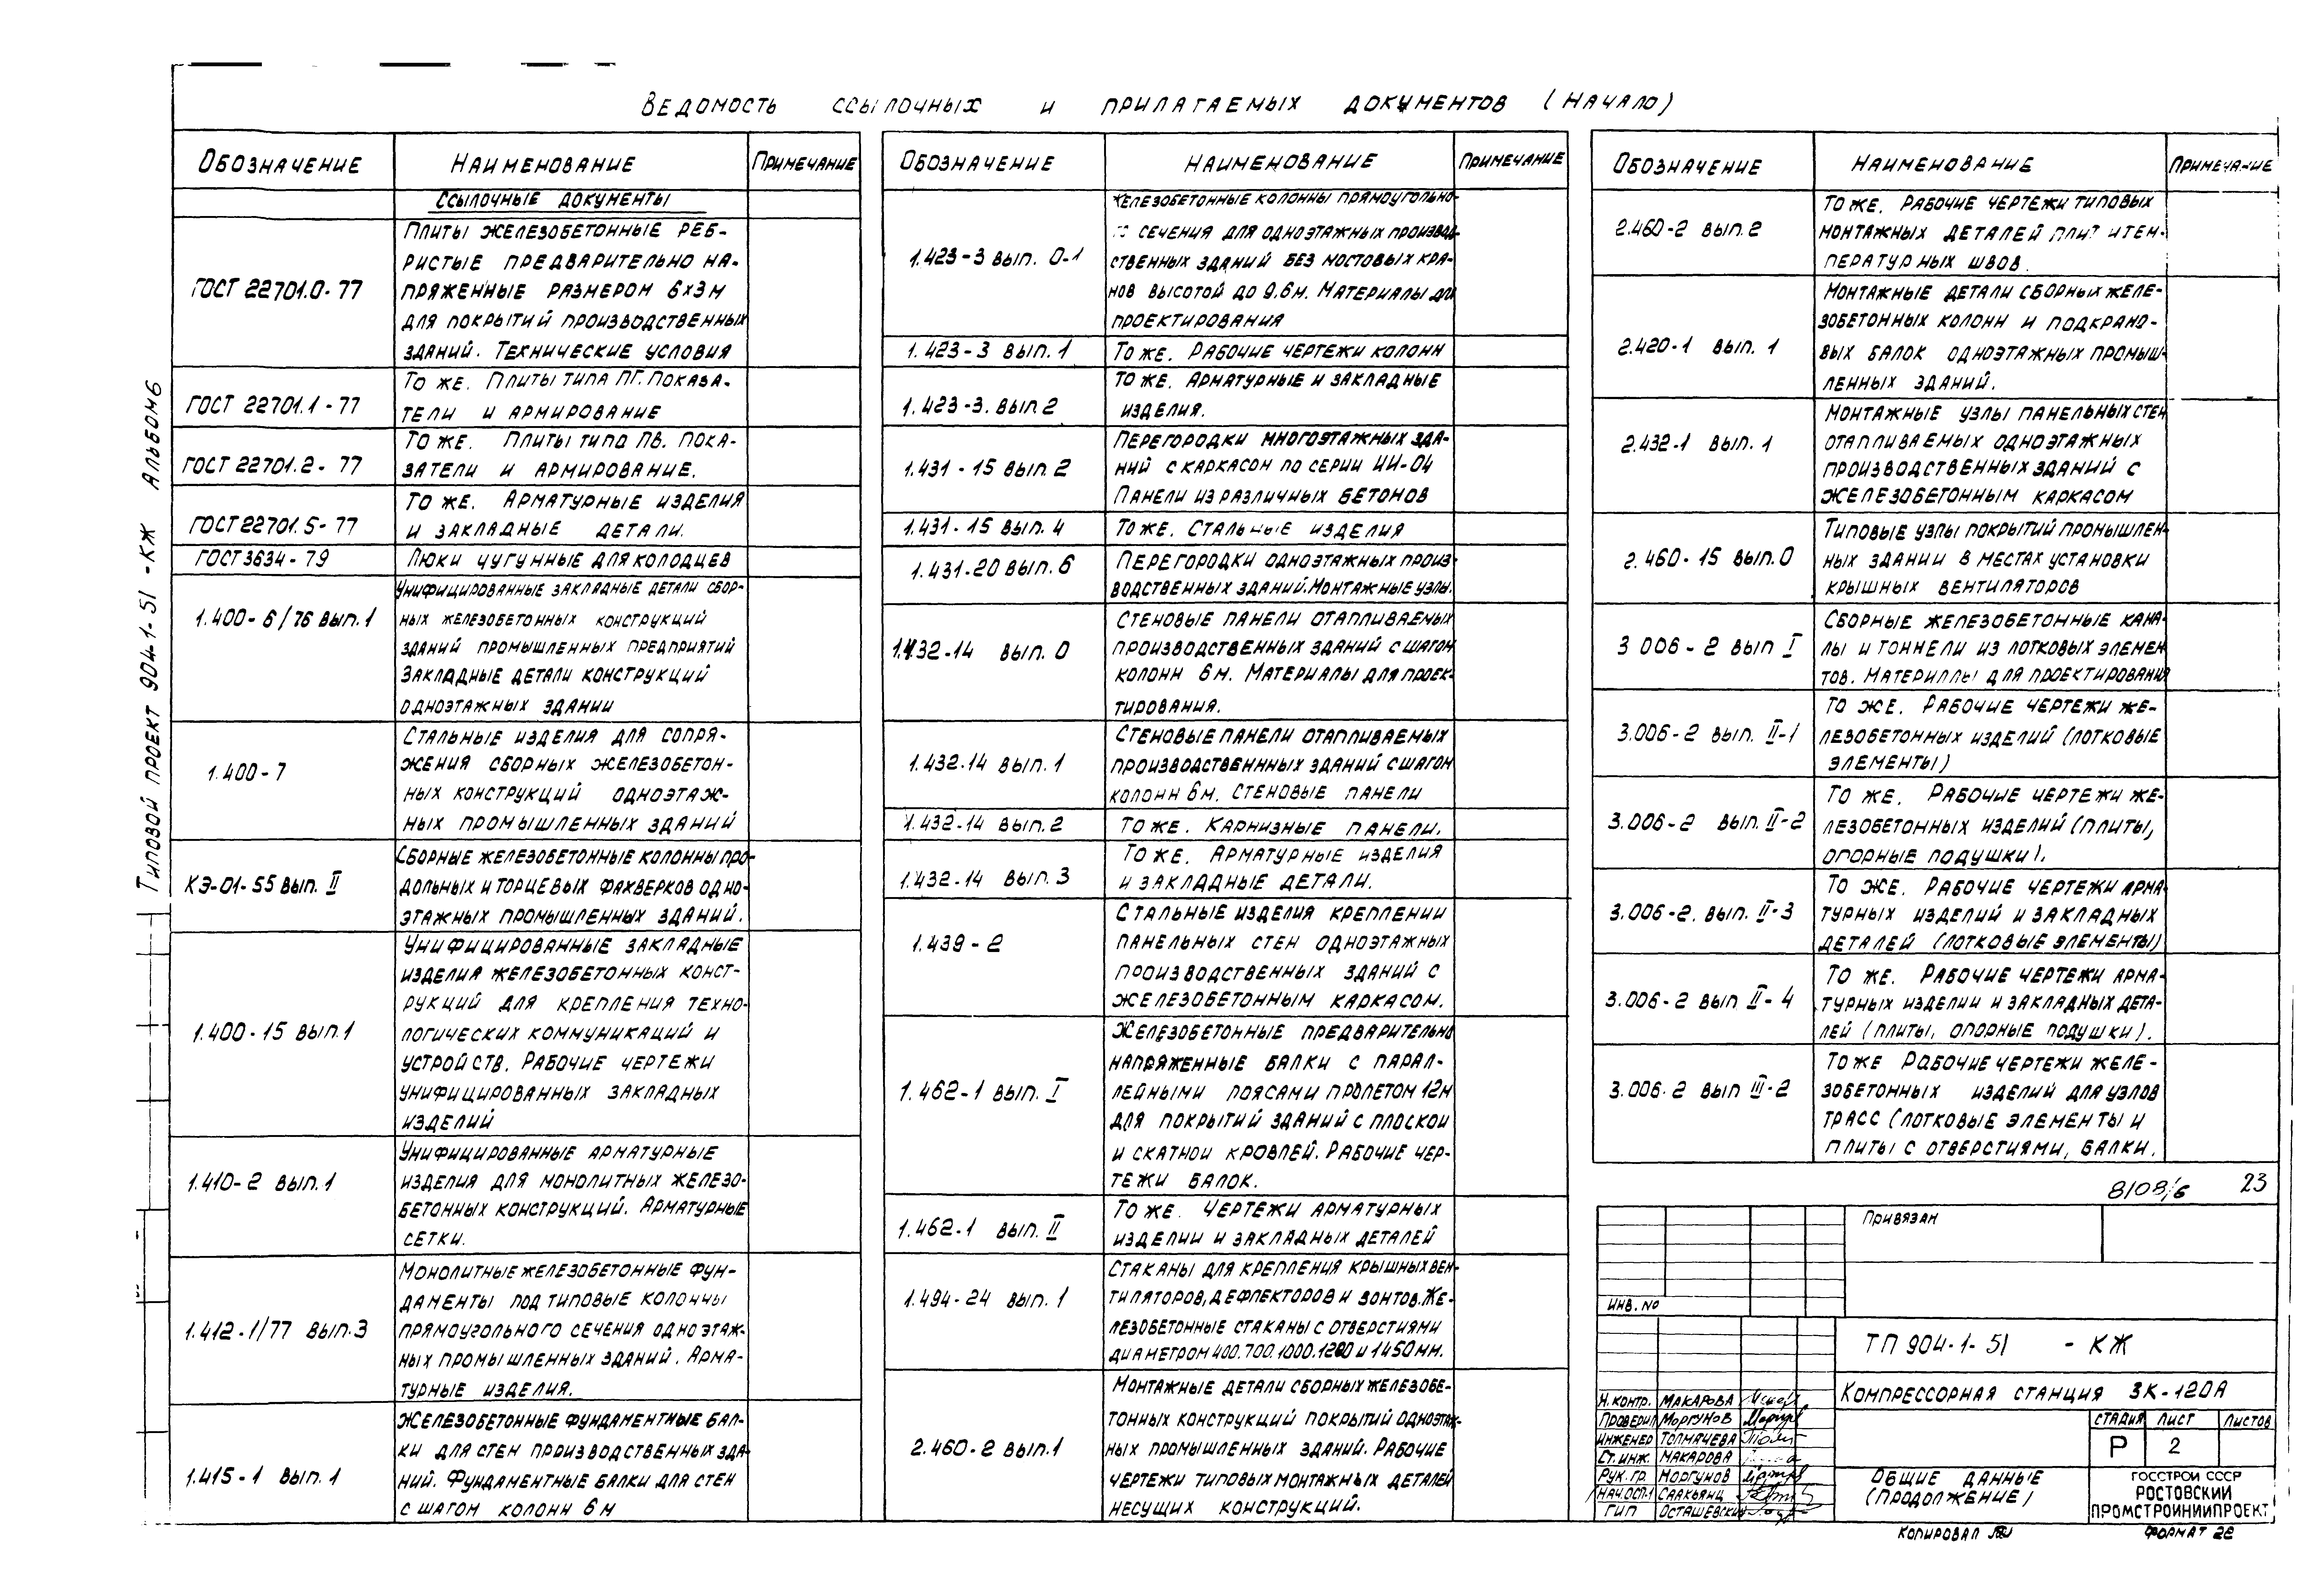 Ведомость ссылочных и прилагаемых документов (начало)
Обозначение Наименование Примечание
Ссылочные документы
ГОСТ 22701.0-77
Плиты железобетонные реб-
ристые предварительно на-
пряженные размером 6х3м
для покрытий производственных
зданий. Технические условия
ГОСТ 22701.1-77
То же. Плиты типа ПГ. Показа-
тели и армирование
ГОСТ 22701.2-77
То же. Плиты типа ПВ. Пока-
затели и армирование.
ГОСТ 22701.5-77
То же. Арматурные изделия
и закладные детали.
ГОСТ 3634-79 Люки чугунные для колодцев
1.400-6/76 вып.1
Унифицированные закладные детали сбор-
ных железобетонных конструкций
зданий промышленных предприятий
Закладные детали конструкций
одноэтажных здании
1.400-7
Стальные изделия для сопря-
жения сборных железобетон-
ных конструкций одноэтаж-
ных промышленных зданий
КЭ-01-55 вып. II
Сборные железобетонные колонны про-
дольных и торцевых фахверков одно-
этажных промышленных зданий.
1.400-15 вып.1
Унифицированные закладные
изделия железобетонных конст-
рукций для крепления техно-
логических коммуникаций и
устройств. Рабочие чертежи
унифицированных закладных
изделий
1.410-2 вып.1
Унифицированные арматурные
изделия для монолитных железо-
бетонных конструкций. Арматурные
сетки.
1.412-1/77 вып.3
Монолитные железобетонные фун-
даменты под типовые колонны
прямоугольного сечения одноэтаж-
ных промышленных зданий. Арма-
турные изделия.
1.415-1 вып.1
Железобетонные фундаментные бал-
ки для стен производственных зда-
ний. Фундаментные балки для стен
с шагом колонн 6м
Обозначение Наименование Примечание
1.423-3 вып. 0-1
Железобетонные колонны прямоугольно-
го сечения для одноэтажных производ-
ственных зданий без мостовых кра-
нов высотой до 9.6м. Материалы для
проектирования
1.423-3 вып.1 То же. Рабочие чертежи колонн
1.423-3. вып 2
То же. Арматурные и закладные
изделия.
1.431-15 вып. 2
Перегородки многоэтажных зда-
ний с каркасом по серии ИИ-04
Панели из различных бетонов
1.431-15 вып. 4 То же. Стальные изделия
1.431-20 вып. 6
Перегородки одноэтажных произ-
водственных зданий. Монтажные узлы.
1.432-14 вып. 0
Стеновые панели отапливаемых
производственных зданий с шагом
колонн 6м. Материалы для проек-
тирования.
1.432-14 вып. 1
Стеновые панели отапливаемых
производственнных зданий с шагом
колонн 6м. Стеновые панели
1.432-14 вып.2 То же. Карнизные панели.
1.432-14 вып. 3
То же. Арматурные изделия
и закладные детали.
1.439-2
Стальные изделия креплении
панельных стен одноэтажных
производственных зданий с
железобетонным каркасом.
1.462-1 вып. I
Железобетонные предварительно
напряженные балки с парал-
лейными поясами пролетом 12м
для покрытий зданий с плоской
и скатной кровлей. Рабочие чер-
тежи балок.
1.462-1 вып. II
То же. Чертежи арматурных
изделии и закладных деталей
1.494-24 вып. 1
Стаканы для крепления крышных вен-
тиляторов, дефлекторов и зонтов. Же-
лезобетонные стаканы с отверстиями
диаметром 400.700.1000.1200 и 1450мм.
2.460-2 вып.1
Монтажные детали сборных железобе-
тонных конструкций покрытий одноэтаж-
ных промышленных зданий. Рабочие
чертежи типовых монтажных деталей
несущих конструкций.
Обозначение Наименование Примечание
2.460-2 вып.2
То же. Рабочие чертежи типовых
монтажных деталей плит и тем-
пературных швов.
2.420-1 вып. 1
Монтажные детали сборных желе-
зобетонных колонн и подкрано-
вых балок одноэтажных промыш-
ленных зданий.
2.432-1 вып. 1
Монтажные узлы панельных стен
отапливаемых одноэтажных
производственных зданий с
железобетонным каркасом
2.460-15 вып.0
Типовые узлы покрытий промышлен-
ных здании в местах установки
крышных вентиляторов
3 006-2 вып I
Сборные железобетонные кана-
лы и тоннели из лотковых элемен
тов. Материллы для проектирования
3.006-2 вып. II-1
То же. Рабочие чертежи же-
лезобетонных изделий (лотковые
элементы)
3.006-2 вып. II-2
То же. Рабочие чертежи же-
лезобетонных изделий (плиты,
опорные подушки).
3.006-2. вып. II-3
То же. Рабочие чертежи арма-
турных изделий и закладных
деталей (лотковые элементы)
3.006-2 вып II-4
То же. Рабочие чертежи арма-
турных изделии и закладных дета-
лей (плиты, опорные подушки).
3.006.2 вып III-2
То же Рабочие чертежи желе-
зобетонных изделий для узлов
трасс (лотковые элементы и
плиты с отверстиями, балки.
8108/6 23
Привязан
Инв. №
ТП 904-1-51 - КЖ
Компрессорная станция 3К-120А
Н.контр. Макарова
Проверил Моргунов
Инженер Толмачева
Ст.инж. Макарова
Рук. гр. Моргунов
Нач.осп-1 Саакьянц
ГИП Осташевский
Стадия Лист Листов
Р 2
Общие данные
(продолжение)
ГОССТРОЙ СССР
РОСТОВСКИЙ
ПРОМСТРОЙНИИПРОЕКТ
Копировал Формат 22
Типовой проект 904-1-51 -КЖ Альбом 6